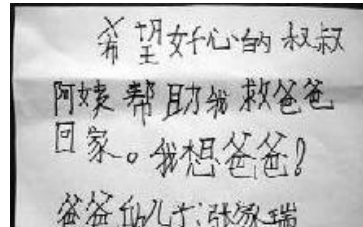 希望好心的叔叔
阿姨帮助我救爸爸
回家。我想爸爸！
爸爸的儿子：张家瑞